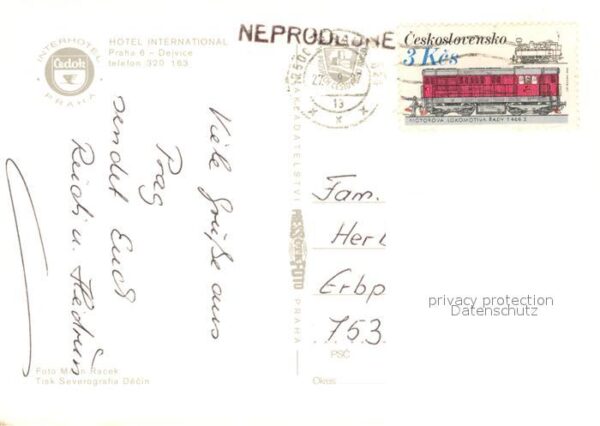 INTERHOTEL
Čedok
PRAHA
HOTEL INTERNATIONAL
Praha 6 - Dejvice
telefon 320 163
NEPRODEJNÉ
Československo
3 Kčs
MOTOROVÁ LOKOMOTIVA ŘADY T 466.2
27.
13
Viele Grüße aus
Prag
sendet Euch
NAKLADATELSTVÍ
PRESSFOTO
PRAHA
Fam.
Her
Erbp
753
PSČ
Okres
privacy protection
Datenschutz
Foto Milan Racek
Tisk Severografia Děčín